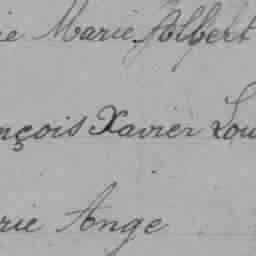 ie Marie Albert
nçois Xavier Lou
rie Ange